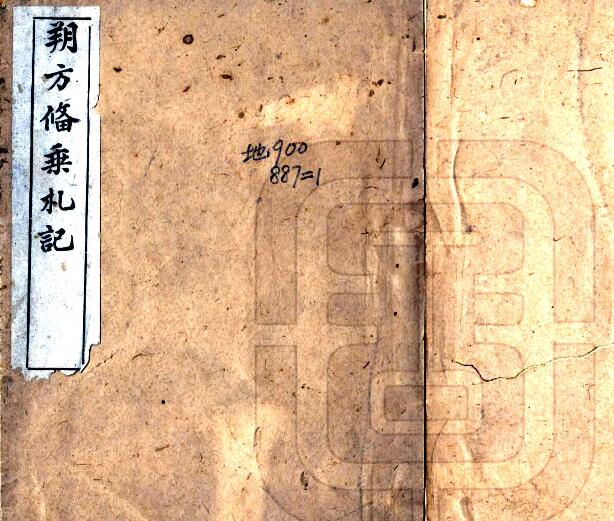 朔方備乗札記
地900
887=1